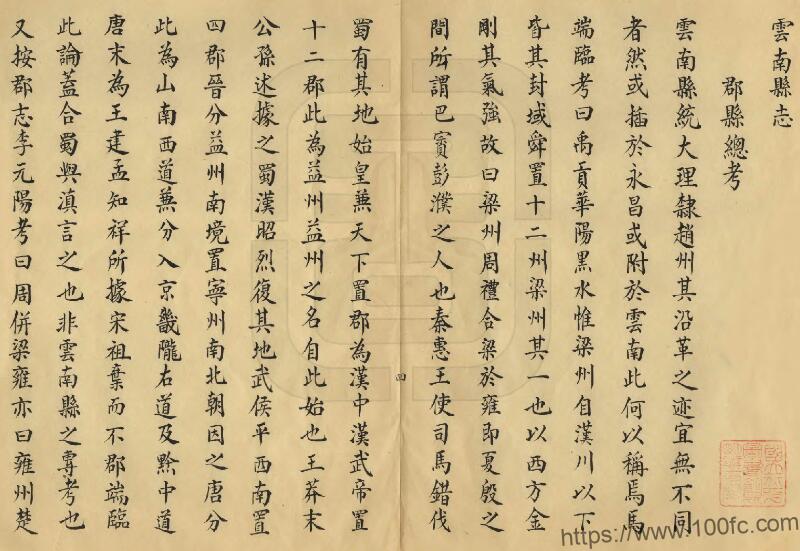 雲南縣志
郡縣總考
雲南縣統大理隸趙州其沿革之迹宜無不同
者然或插於永昌或附於雲南此何以稱焉馬
端臨考曰禹貢華陽黑水惟梁州自漢川以下
皆其封域舜置十二州梁州其一也以西方金
剛其氣強故曰梁州周禮合梁於雍即夏殷之
間所謂巴賨彭濮之人也秦惠王使司馬錯伐
蜀有其地始皇兼天下置郡為漢中漢武帝置
十二郡此為益州益州之名自此始也王莽末
公孫述據之蜀漢昭烈復其地武侯平西南置
四郡晉分益州南境置寧州南北朝因之唐分
此為山南西道兼分入京畿隴右道及黔中道
唐末為王建孟知祥所據宋祖棄而不郡端臨
此論蓋合蜀與滇言之也非雲南縣之專考也
又按郡志李元陽考曰周併梁雍亦曰雍州楚
四
https://www.100fc.com